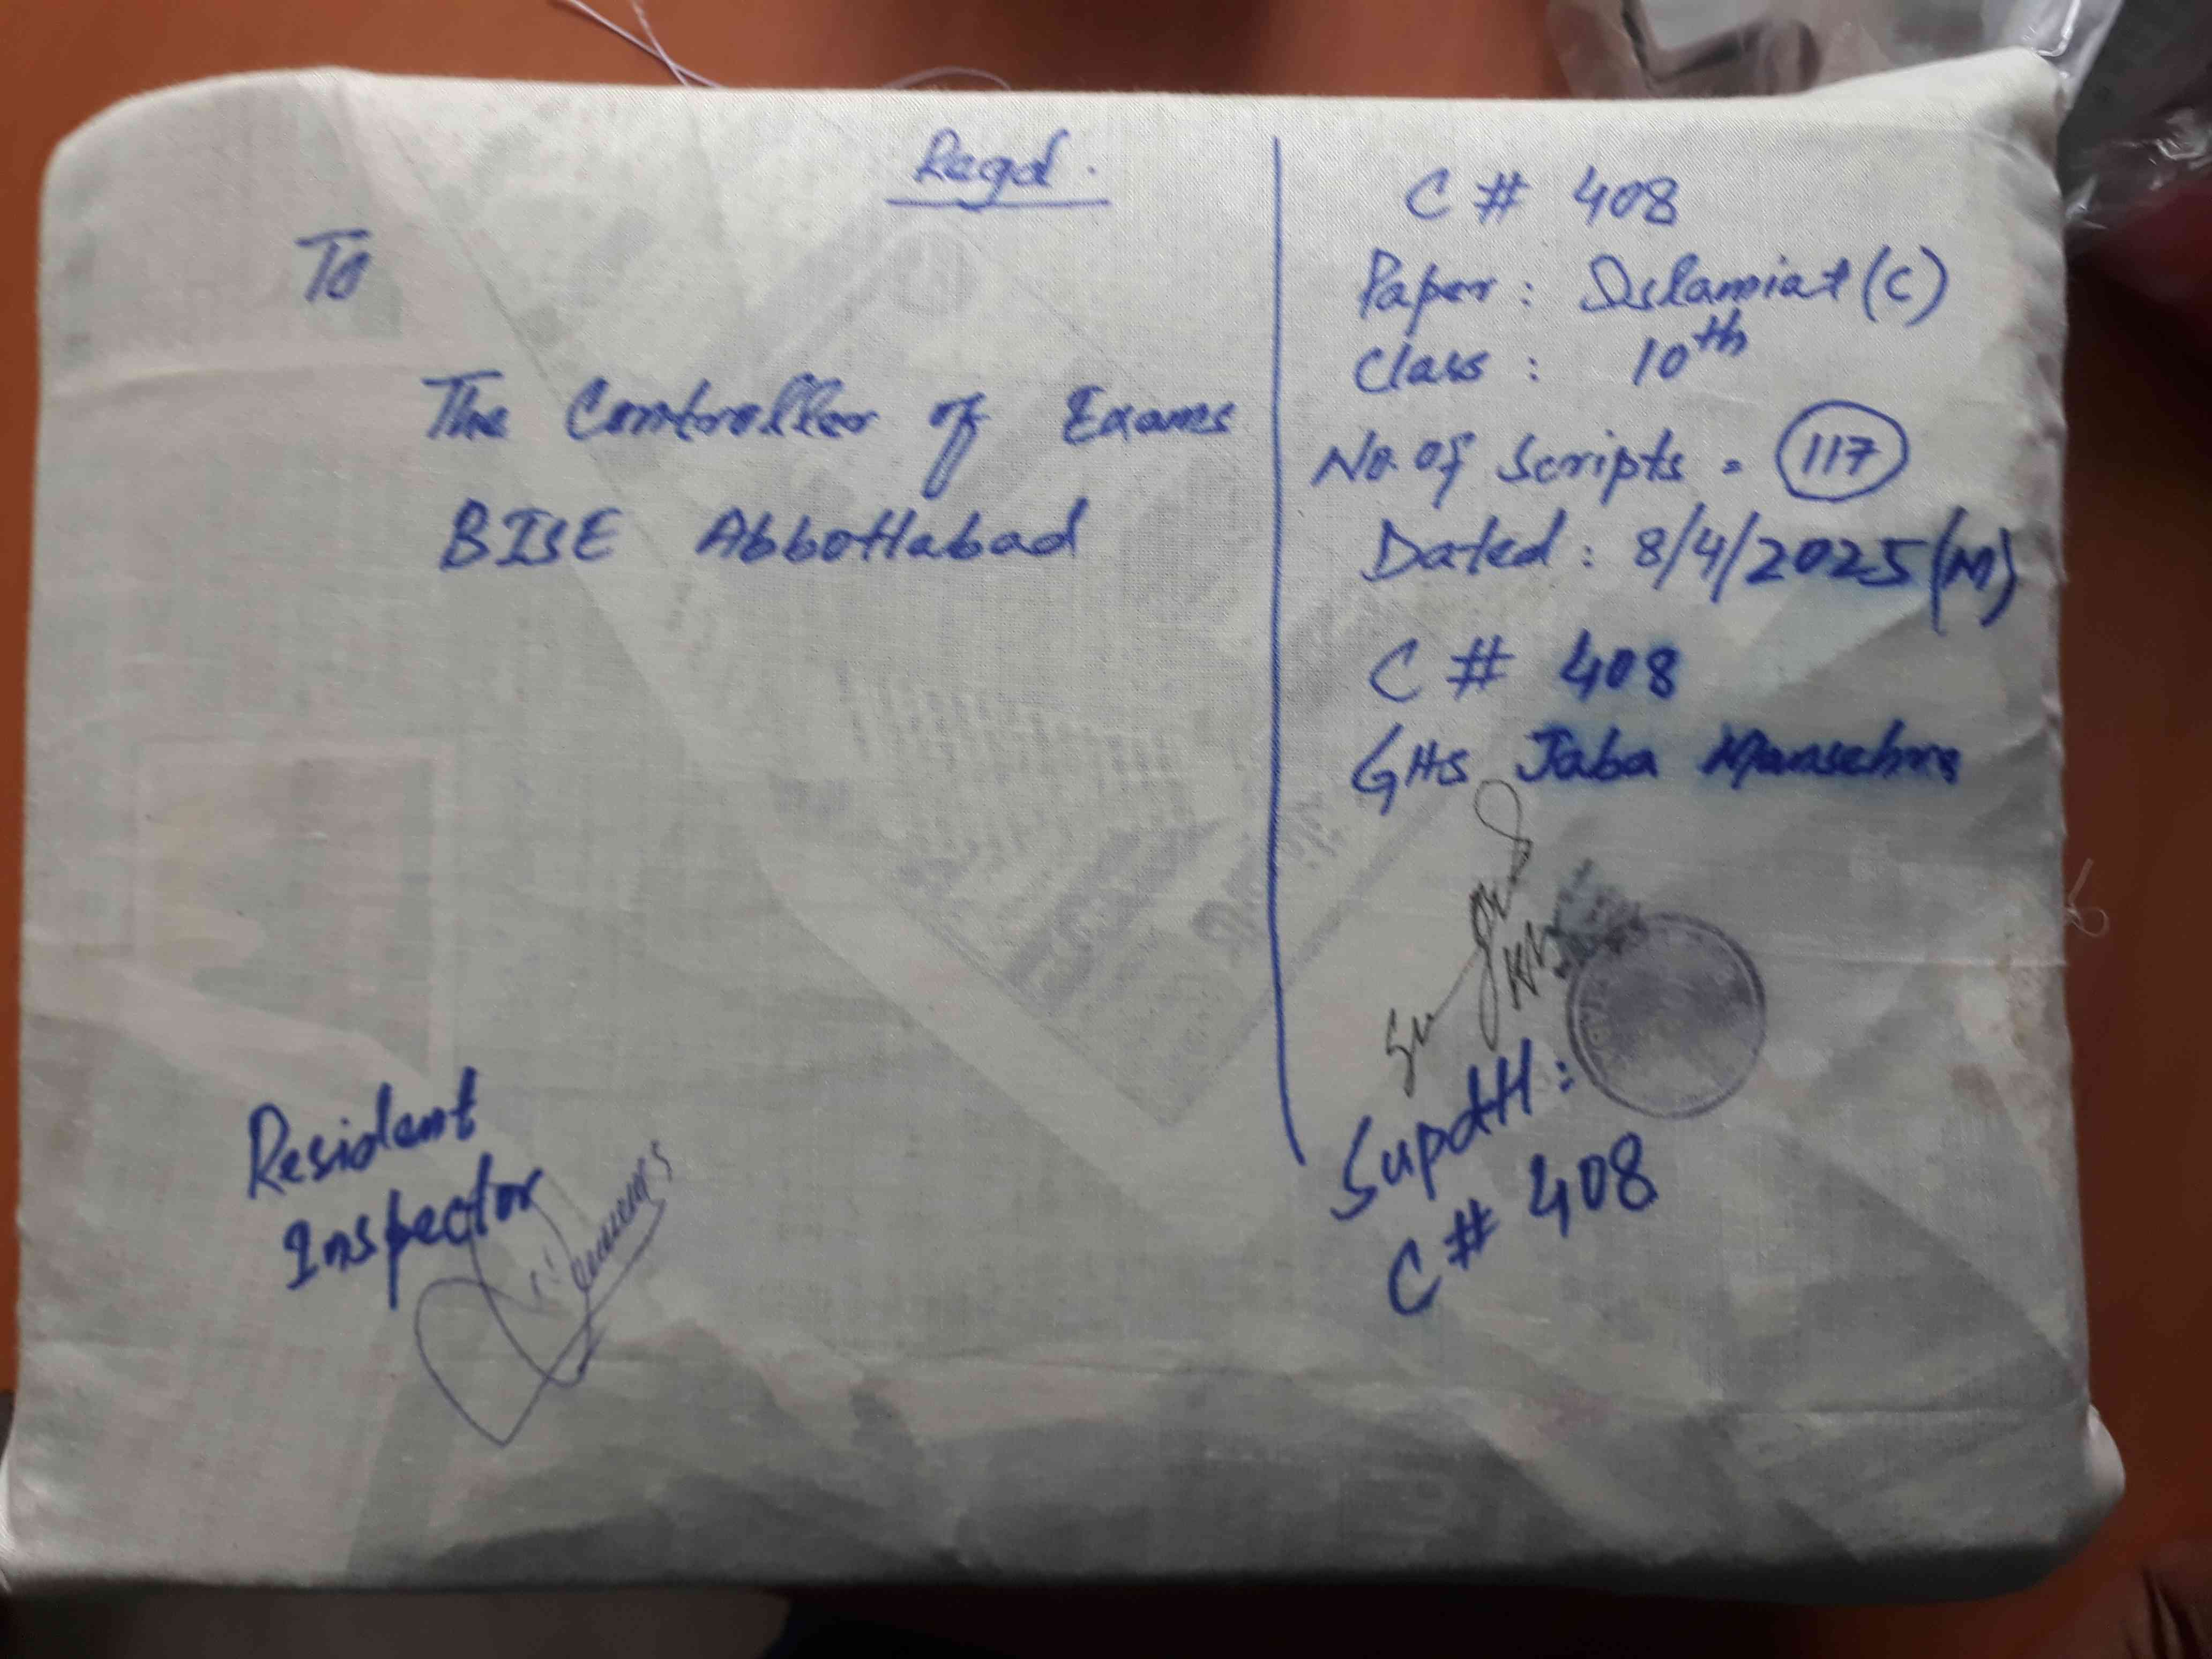 Regd.
To
The Controller of Exams
BISE Abbottabad
Resident
Inspector
C # 408
Paper : Islamiat (C)
Class : 10th
No. of Scripts = 117
Dated : 8/4/2025 (M)
C # 408
GHS Jaba Mansehra
Supdtt :
C # 408